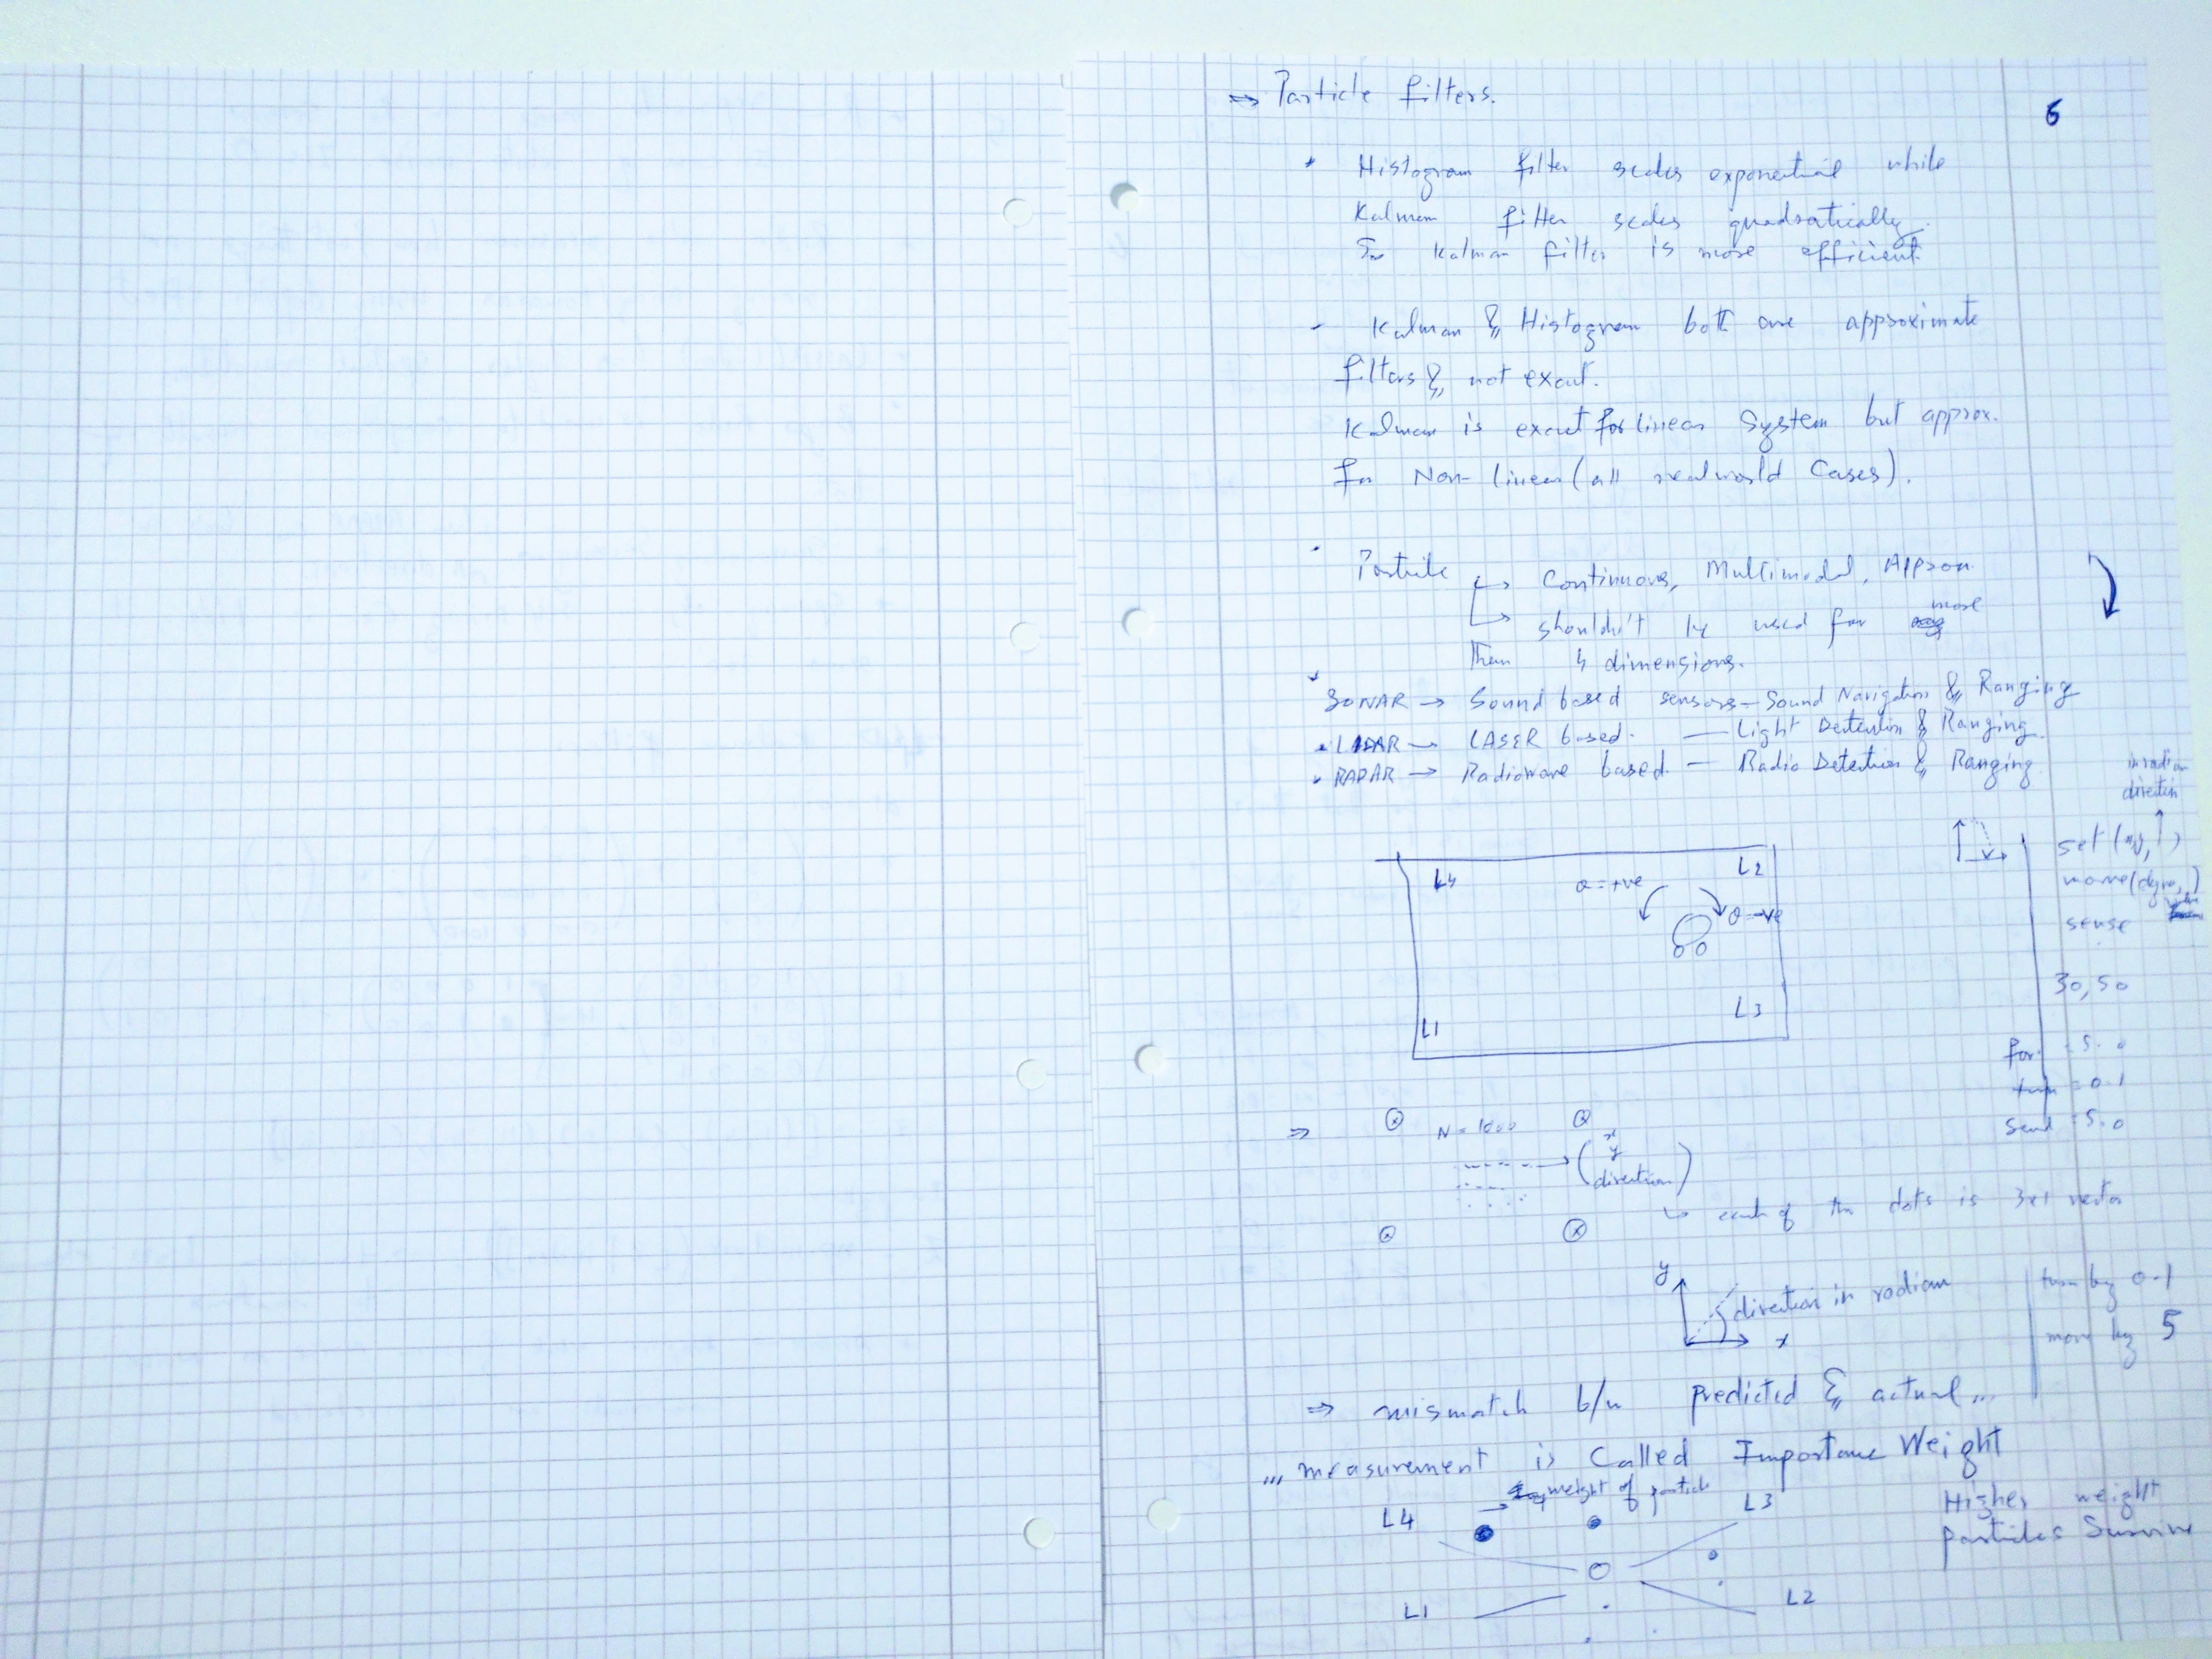 ⇒ Particle filters.
6
* Histogram filter scales exponential while
Kalman filter scales quadratically.
So Kalman filter is more efficient.
- Kalman & Histogram both are approximate
filters & not exact.
Kalman is exact for linear System but approx.
for Non-linear (all realworld Cases).
Particle ↳ Continuous, Multimodal, Approx.
↳ shouldn't be used for more
than 4 dimensions.
SONAR → Sound based sensors - Sound Navigation & Ranging
• LIDAR → LASER based. — Light Detection & Ranging.
• RADAR → Radiowave based. — Radio Detection & Ranging
in radian
direction
set (x,y, )
move(
sense
30,50
for = 5.0
turn = 0.1
5.0
L4 L2
θ=+ve θ=-ve
L1 L3
⇒ N = 1000
→ (x
y
direction)
↳ each of the dots is 3x1 vector
y
direction in radian
x
turn by 0.1
move by 5
⇒ mismatch b/w predicted & actual...
... measurement is Called Importance Weight
→ weight of particle
L4 L3
Higher weight
particles Survive
L1 L2